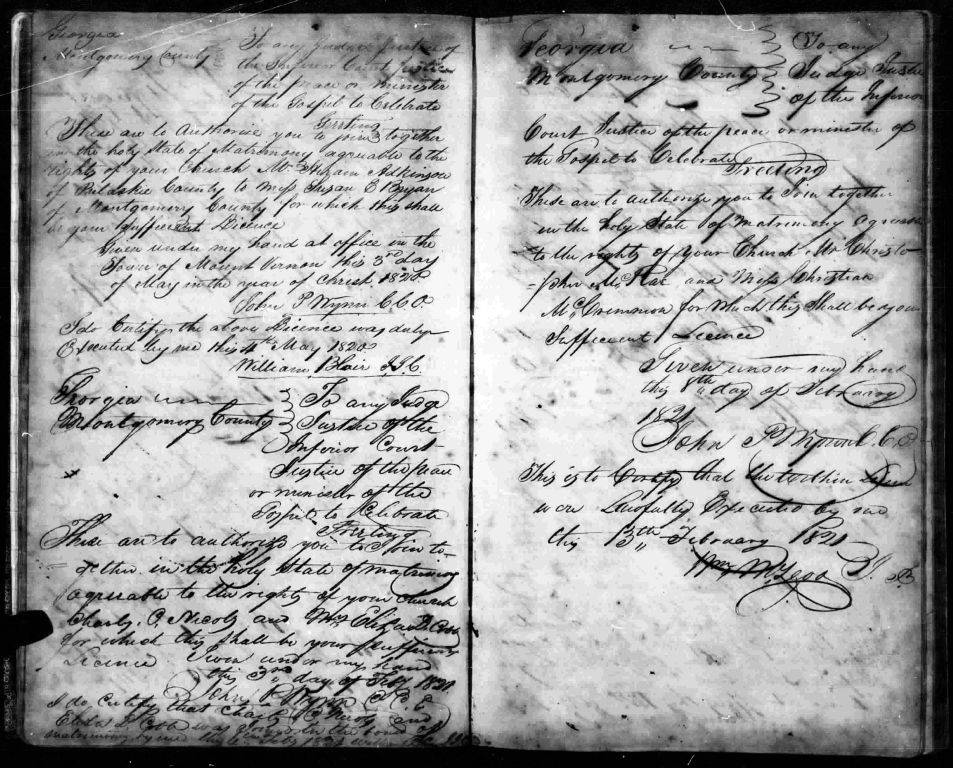 Georgia
Montgomery County
To any Judge Justice of
the Inferior Court Justice
of the peace or minister
of the Gospel to Celebrate
Greeting
These are to Authorise you to join together
in the holy State of Matrimony agreable to the
rights of your Church Mr Hiram Adkinson
of Pulaskie County to Miss Susan E Bryan
of Montgomery County for which this shall
be your Sufficient Licence
Given under my hand at office in the
Town of Mount Vernon this 3rd day
of May in the year of Christ 1820
John P Wynn C C O
I do Certify the above Licence was duly
Executed by me this 4th May 1820
William Blair J I C
Georgia
Montgomery County
To any Judge
Justice of the
Inferior Court
Justice of the peace
or minister of the
Gospel to Celebrate
Greeting
These are to authorize you to Join to-
gether in the holy State of matrimony
agreeable to the rights of your Church
Charly P. Nicoly and Eliza D Cobb
for which this shall be your sufficient
Licence Given under my hand
this 3rd day of Feby 1821
John P Wynn C C O
I do Certify that
Eliza D Cobb in the bond of
matrimony by me this
Georgia
Montgomery County
To any
Judge Justice
of the Inferior
Court Justice of the peace or minister of
the Gospel to Celebrate
Greeting
These are to authorize you to Join together
in the holy State of matrimony agreeable
to the rights of your Church Mr Christo-
pher McRae and Miss Christian
McCrimmon for which this Shall be your
Sufficient Licence
Given under my hand
this 8th day of February
1821
John P Wynn C. C O
This is to Certify that the within Licence
were Lawfully Executed by me
this 13th February 1821
Wm McLeod J. P